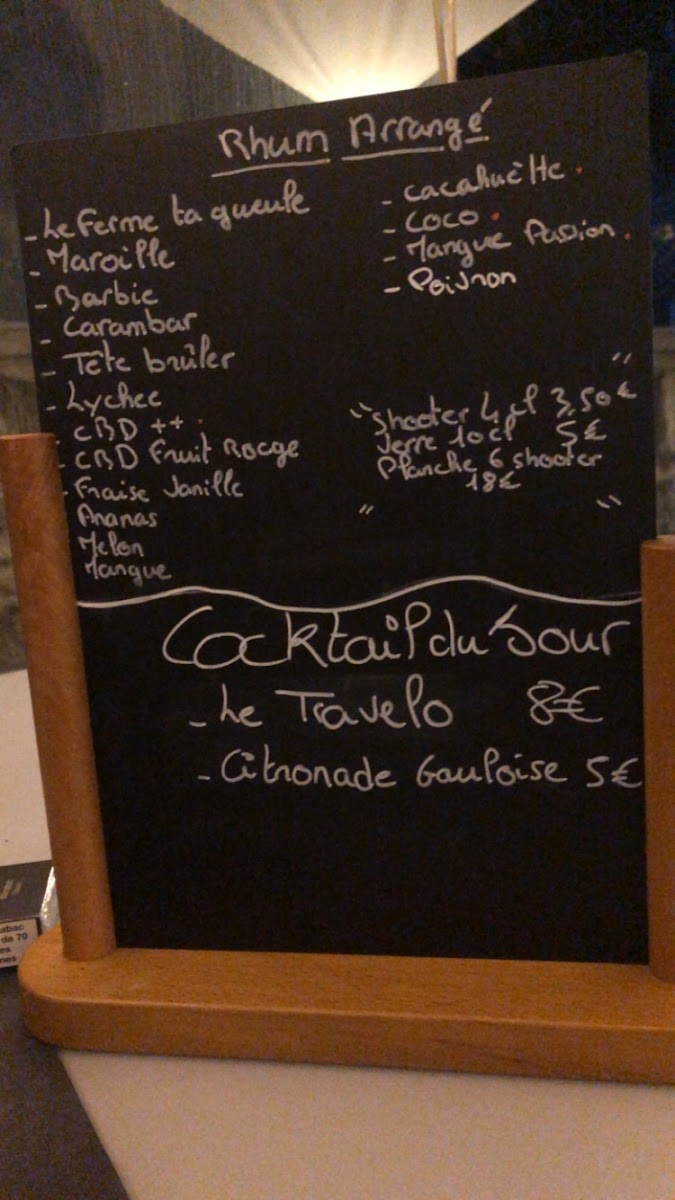 Rhum Arrangé
- Le Ferme ta gueule
- Maroille
- Barbie
- Carambar
- Tête brûler
- Lychee
- CBD ++
- CBD Fruit Rocge
- Fraise Vanille
Ananas
Melon
Mangue
- Cacahuètte
- Coco
- Mangue Passion
- Poivron
"Shooter 4 cl 3,50€"
Verre 10cl 5€
Planche 6 shooter
" 18€ "
Cocktail du Jour
- Le Travelo 8€
- Citronade Gauloise 5€
abac
de 70
es
nes